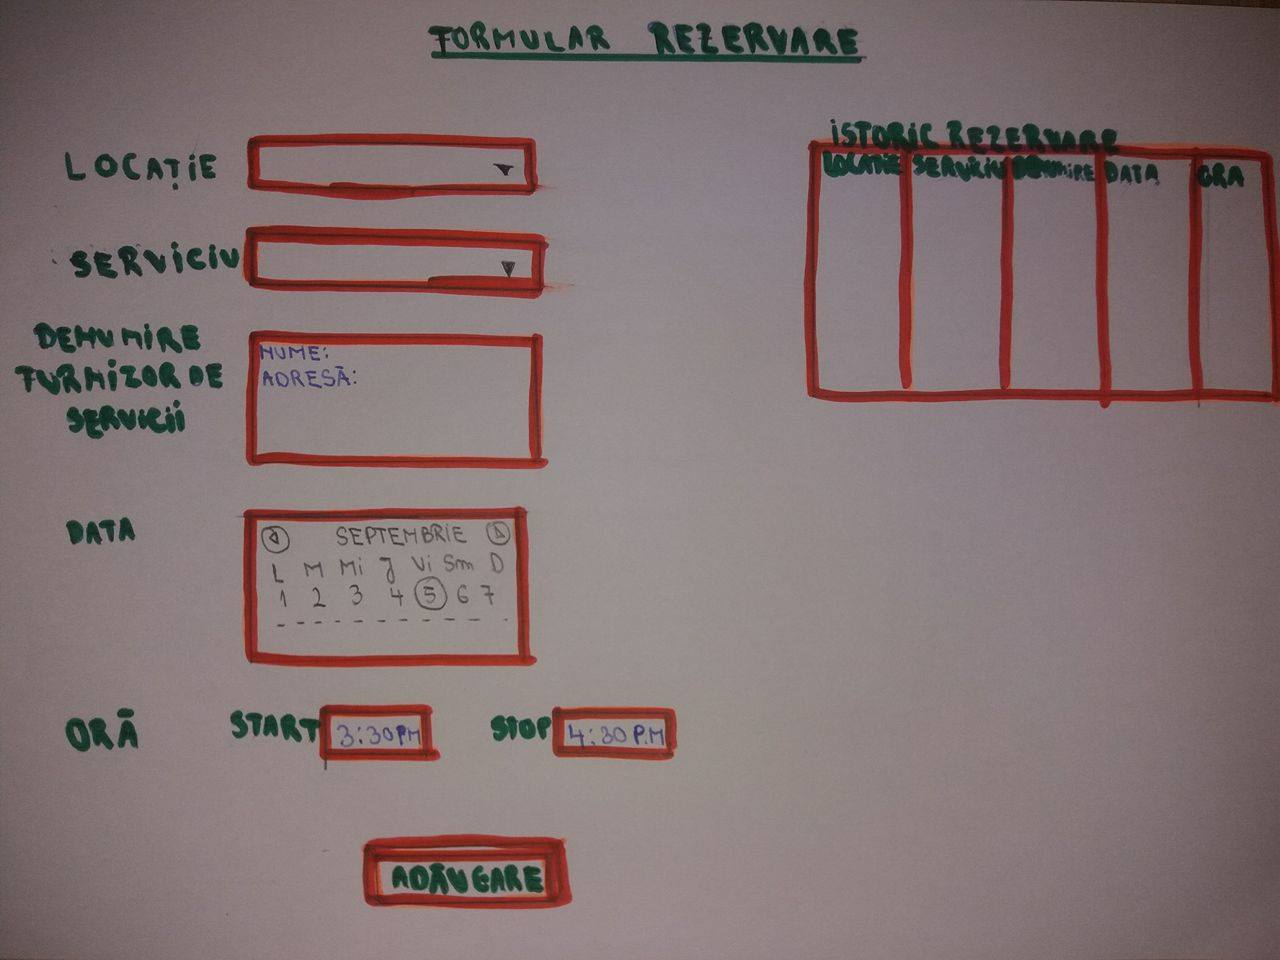 FORMULAR REZERVARE
LOCAȚIE
SERVICIU
DENUMIRE
FURNIZOR DE
SERVICII
NUME:
ADRESĂ:
DATA
SEPTEMBRIE
L M Mi J Vi Sm D
1 2 3 4 5 6 7
ORĂ START 3:30PM STOP 4:30 P.M
ADĂUGARE
ISTORIC REZERVARE
LOCATIE SERVICIU DENUMIRE DATA ORA